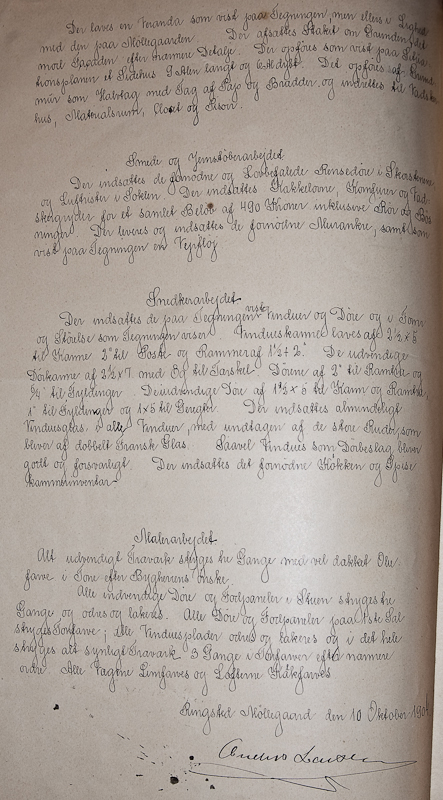 Der laves en Veranda som vist paa Tegningen, men ellers i Lighed
med den paa Möllegaarden. Der afsættes Staket om Grunden, det
mod Gaarden efter nærmere Detalje. Der opföres som vist paa Situa
tionsplanen et Sidehus 9 Alen langt og 6 Al dybt. Det opföres af Grund
mur som Halvtag med Tag af Pap og Brædder, og indrettes til Vadske
hus, Materialrum, Closet og Pissoir.
Smede og Jernstöberarbejdet
Der indsættes de fornödne og Lovbefalede Rensedöre i Skorstenene
og Luftrister i Soklen. Der indsættes Kakkelovne, Komfurer og Vad
skegryder for et samlet Belöb af 490 Kroner inklusive Rör og Bös
ninger. Der leveres og indsættes de fornödne Murankre, samt som
vist paa Tegningen en Vejrflöj
Snedkerarbejdet
Der indsættes de paa Tegningen viste Vinduer og Döre og i Form
og Störelse som Tegningen viser. Vindueskarmel laves af 2½ x 5
til Karme 2" til Poste og Rammer af 1½ + 2". De udvendige
Dörkarme af 2½ x 7 med Eg til Tærskel. Dörene af 2" til Ramtræ og
¾" til Fyldinger. De indvendige Döre af 1½ x 5 til Karm og Ramtræ,
1" til Fyldinger og 1 x 5 til Geregter. Der indsættes almindeligt
Vinduesglas i alle Vinduer, med undtagen af de store Ruder, som
bliver af dobbelt Fransk Glas. Saavel Vindues som Dörbeslag bliver
godt og forsvarligt. Der indsættes det fornödne Kökken og Spise
kammerinventar
Malerarbejdet
Alt udvendigt Træværk stryges tre Gange med vel dækket Olie
farve i Tone efter Bygherrens Önske.
Alle indvendige Döre og Fodpaneler i Stuen stryges tre
Gange og odres og lakeres. Alle Döre og Fodpaneler paa 1ste Sal
stryges Tonfarve; alle Vinduesplader odres og lakeres og i det hele
stryges alt synligt Træværk 3 Gange i Tonfarver efter nærmere
ordre. Alle Vægene Limfarves og Lofterne Hvidtfarves
Ringsted Möllegaard den 10 Oktober 190